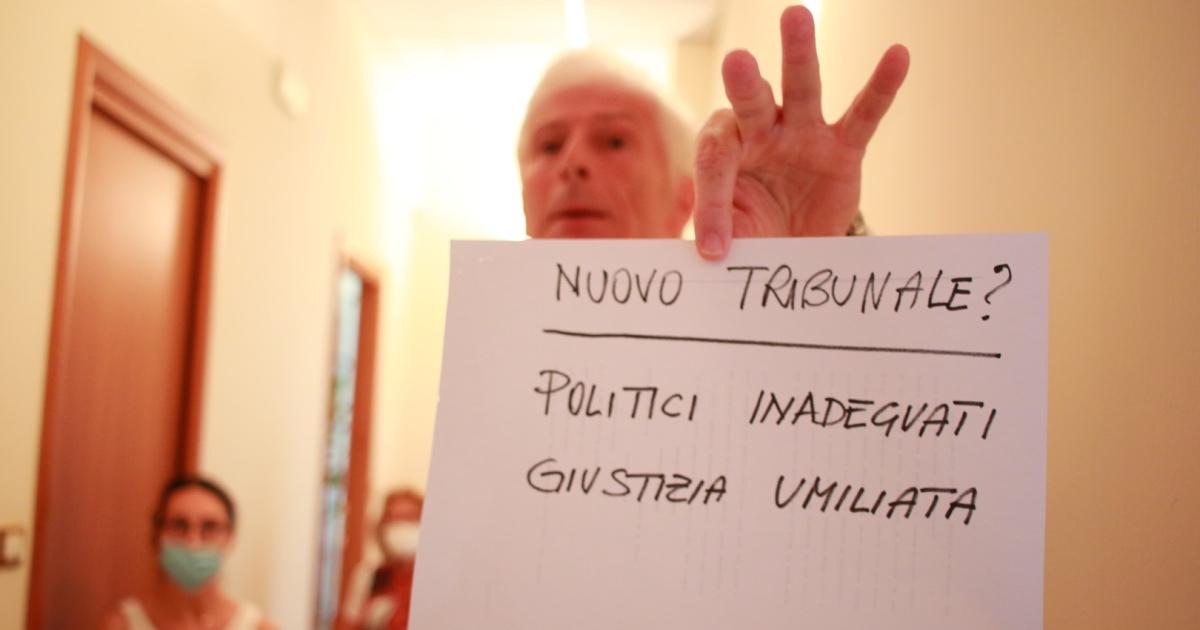 NUOVO TRIBUNALE?
POLITICI INADEGUATI
GIUSTIZIA UMILIATA